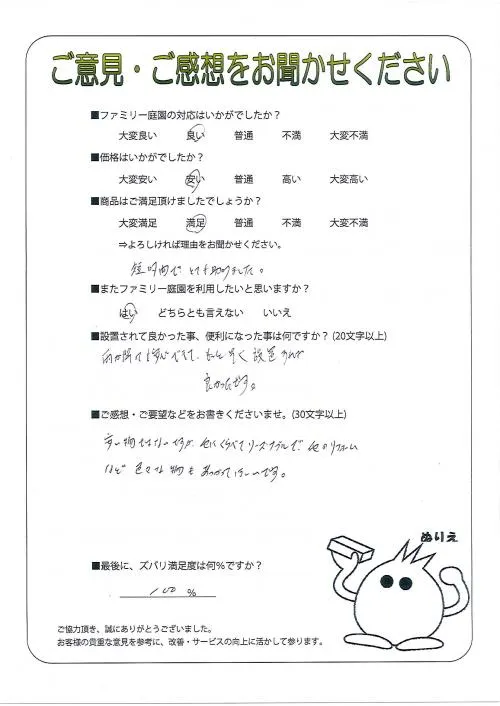 ご意見・ご感想をお聞かせください
■ファミリー庭園の対応はいかがでしたか？
大変良い　良い　普通　不満　大変不満
■価格はいかがでしたか？
大変安い　安い　普通　高い　大変高い
■商品はご満足頂けましたでしょうか？
大変満足　満足　普通　不満　大変不満
⇒よろしければ理由をお聞かせください。
短時間でとても助かりました。
■またファミリー庭園を利用したいと思いますか？
はい　どちらとも言えない　いいえ
■設置されて良かった事、便利になった事は何ですか？(20文字以上)
雨が降っても安心できて、もっと早く設置すれば
良かったです。
■ご感想・ご要望などをお書きくださいませ。(30文字以上)
安い物ではないですが、他にくらべてリーズナブルで、他のリフォーム
など色々な物もあつかってほしいです。
ぬりえ
■最後に、ズバリ満足度は何%ですか？
100 %
ご協力頂き、誠にありがとうございました。
お客様の貴重な意見を参考に、改善・サービスの向上に活かして参ります。